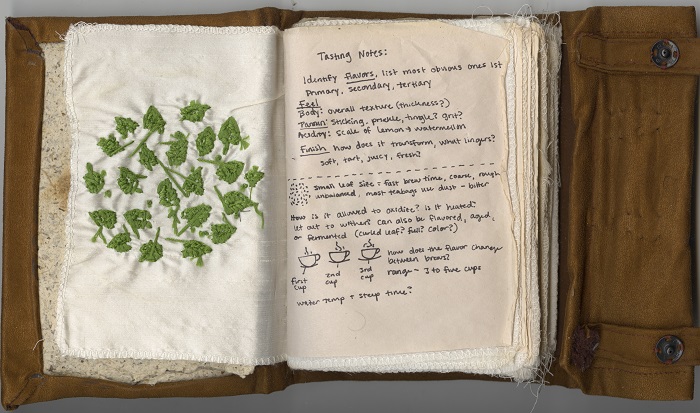 Tasting Notes:
Identify flavors, list most obvious ones 1st
Primary, secondary, tertiary
Feel
Body: overall texture (thickness?)
Tannin: sticking, prickle, tingle? grit?
Acidity: scale of lemon → watermelon
Finish how does it transform, what lingers?
soft, tart, juicy, fresh?
small leaf size = fast brew time, coarse, rough
unbalanced, most teabags use dust = bitter
How is it allowed to oxidize? is it heated?
let out to wither? can also be flavored, aged,
or fermented (curled leaf? full? color?)
first cup
2nd cup
3rd cup
how does the flavor change
between brews?
range - 3 to five cups
water temp + steep time?